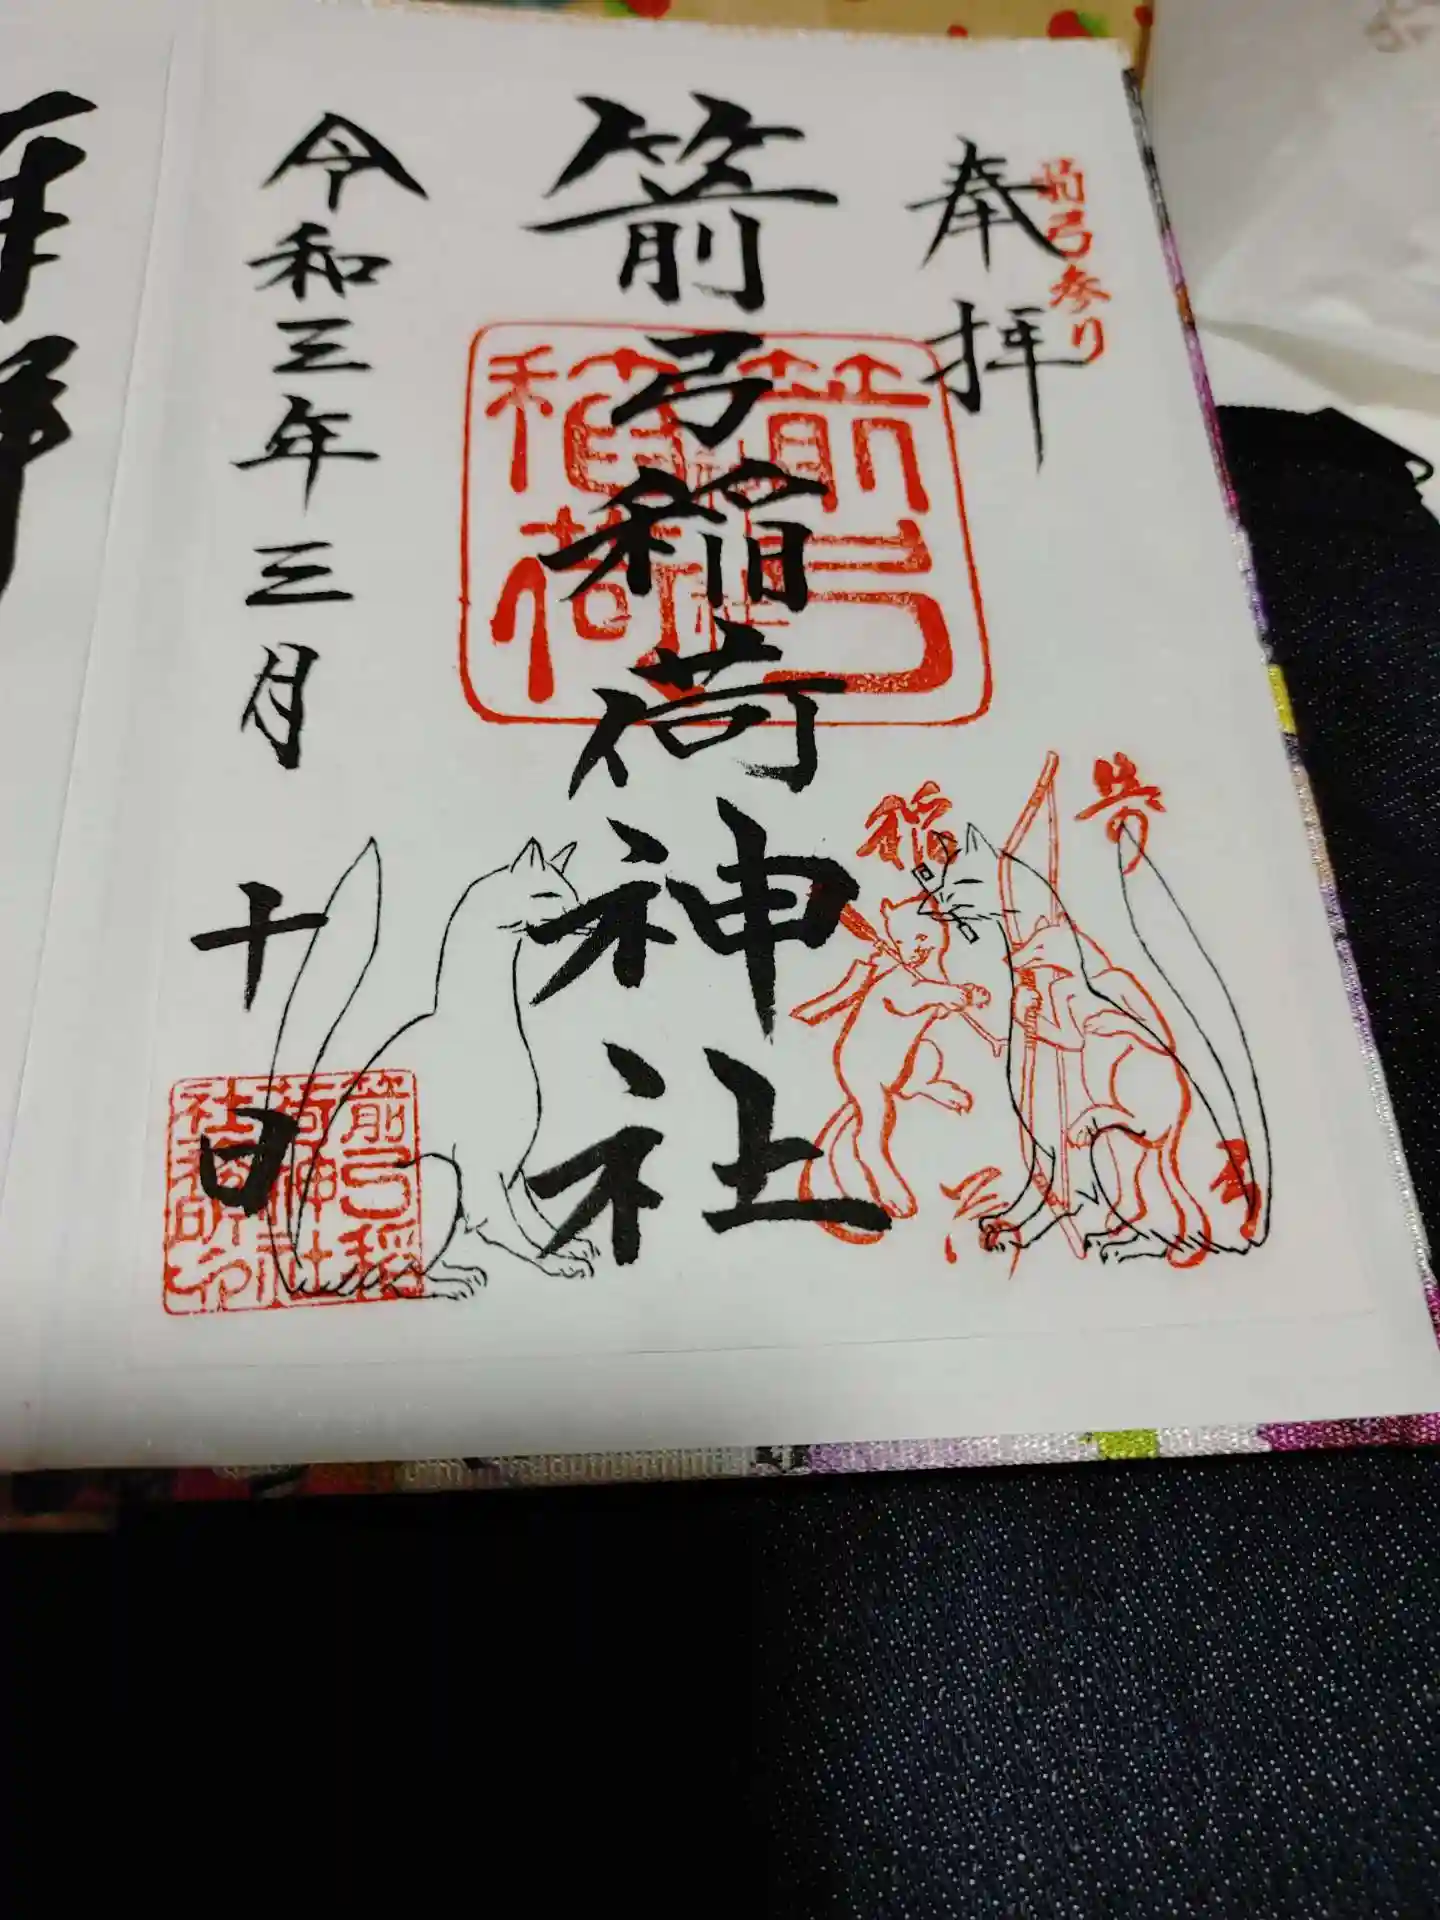 箭弓参り
奉拝
箭弓稲荷神社
箭弓稲荷
令和三年三月十日
箭弓稲
荷神社
社務所印